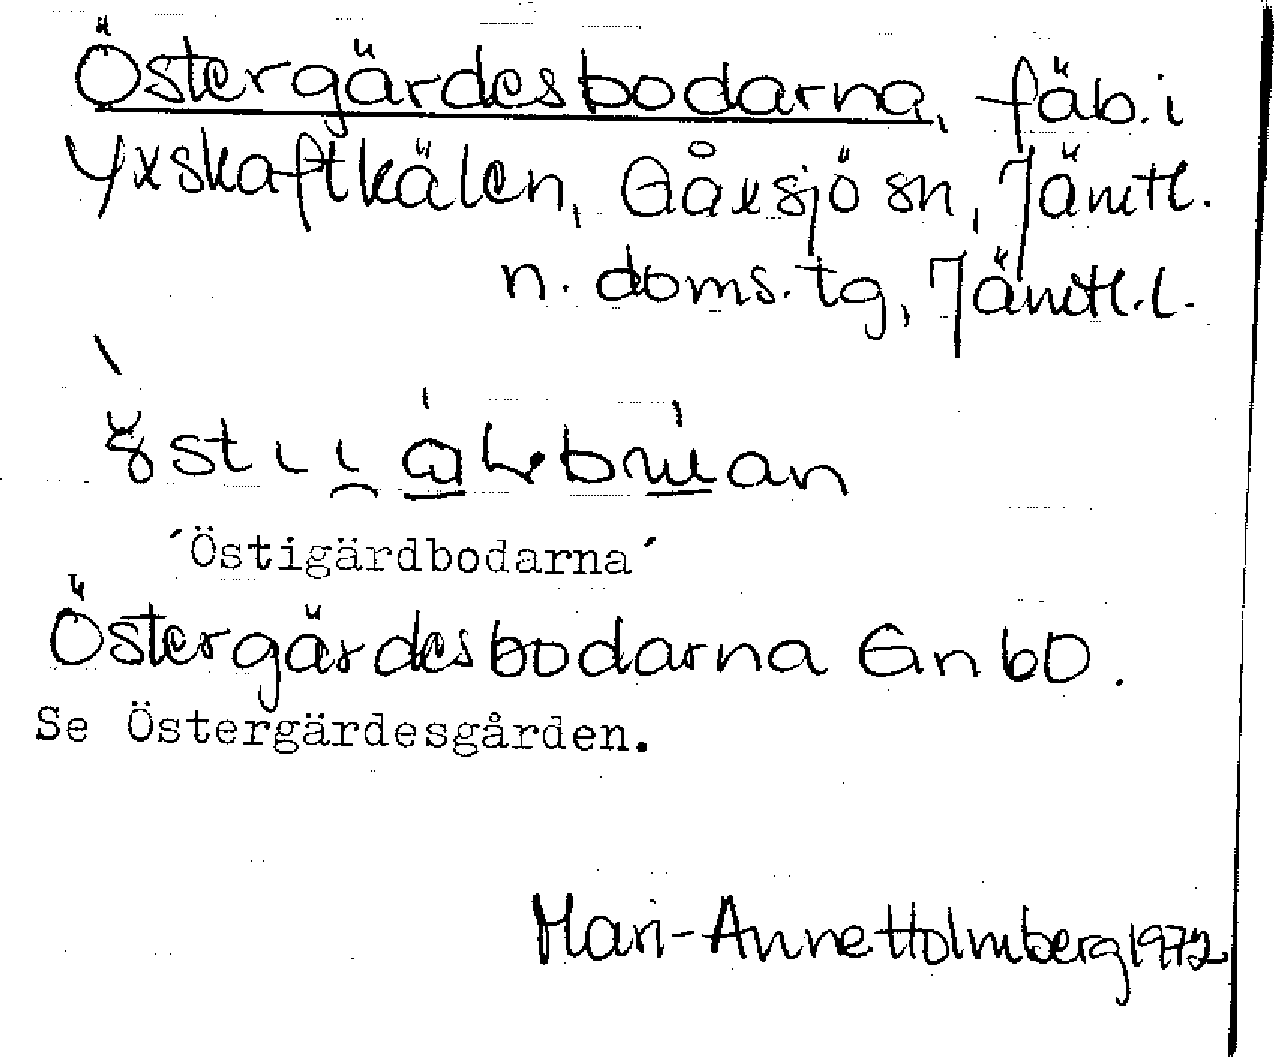 Östergärdesbodarna, fäb. i
Yxskaftkälen, Gåxsjö sn, Jämtl.
n. doms. tg, Jämtl. l.
´Östigärdbodarna´
Östergärdesbodarna Gn 60.
Se Östergärdesgården.
Mari-Anne Holmberg 1972